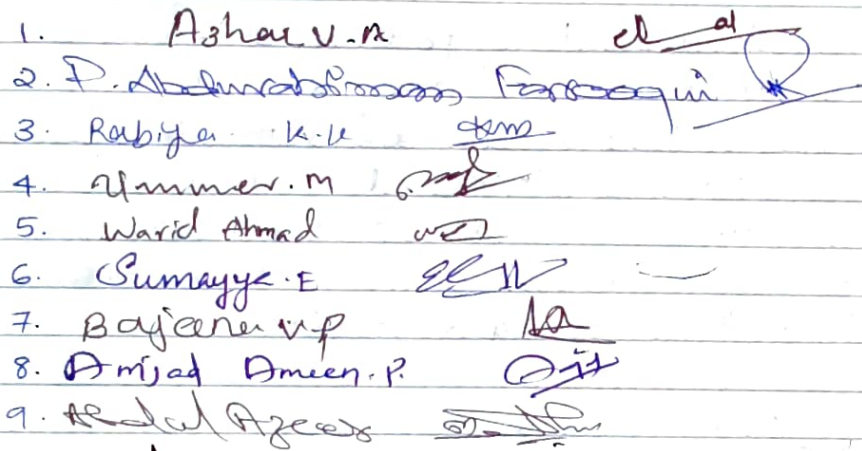 1. Azhar V.A
2. P. Abdurahiman Farooqui
3. Rabiya K.K
4. Ummer.M
5. Warid Ahmad
6. Sumayya.E
7. V.P
8. Amjad Ameen.P.
9. Abdul Azeez